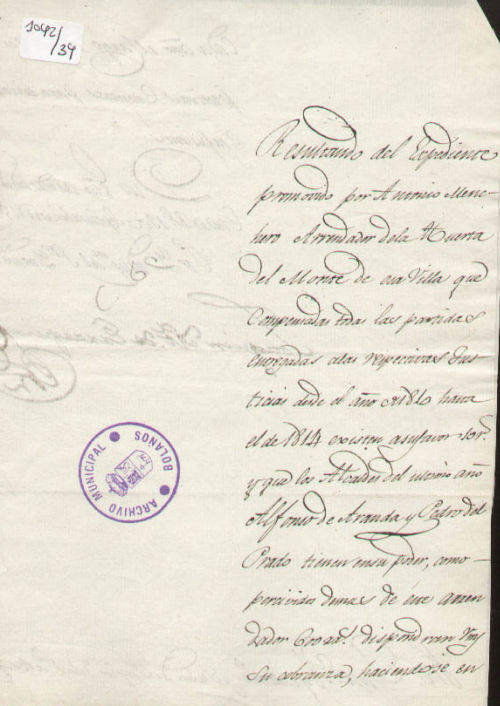 1042/34
Resultando del Expediente
promovido por Antonio Menc
hero Arrendador dela Huerta
del Monte de esa Villa que
Compensadas todas las partidas
entregadas alas respectivas Jus
ticias desde el año de 1810 hasta
el de 1814 existen asufavor
y que los Alcaldes del mismo año
Alfonso de Aranda y Pedro del
Prado tienen ensu poder, como
percividos demas de éste arren
dador dispondran Vms
su cobranza, haciendose en
ARCHIVO MUNICIPAL
BOLAÑOS